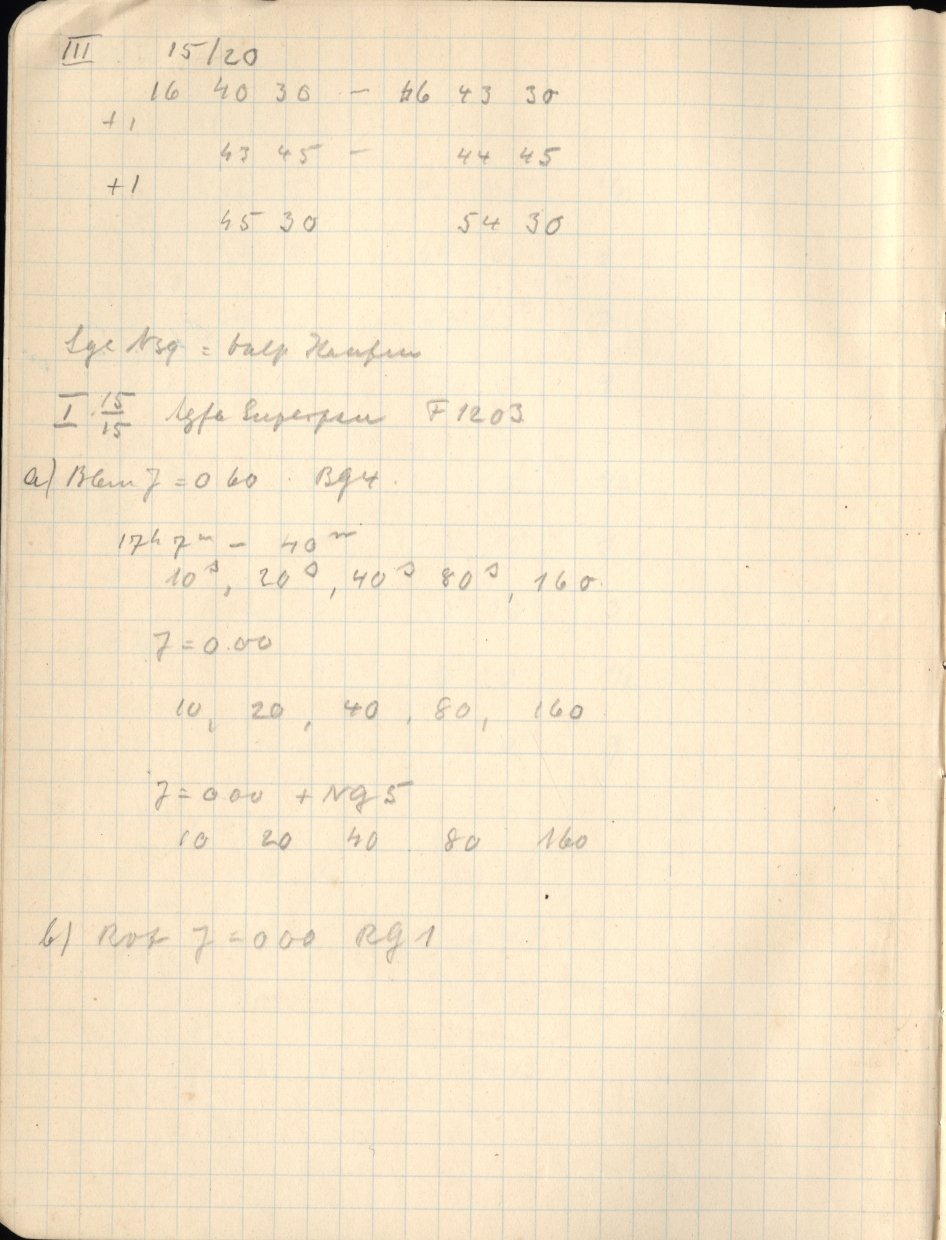 III 15/20
16 40 30 – 16 43 30
+1
43 45 – 44 45
+1
45 30 54 30
= Haufen
I 15/15 Agfa Superpan F 1203
a) Blau J = 0 60 Bg 4.
17h 7m – 40m
10s, 20s, 40s 80s, 160
J = 0.00
10, 20, 40, 80, 160
J = 0 00 + Ng 5
10 20 40 80 160
b) Rot J = 0 00 Rg 1